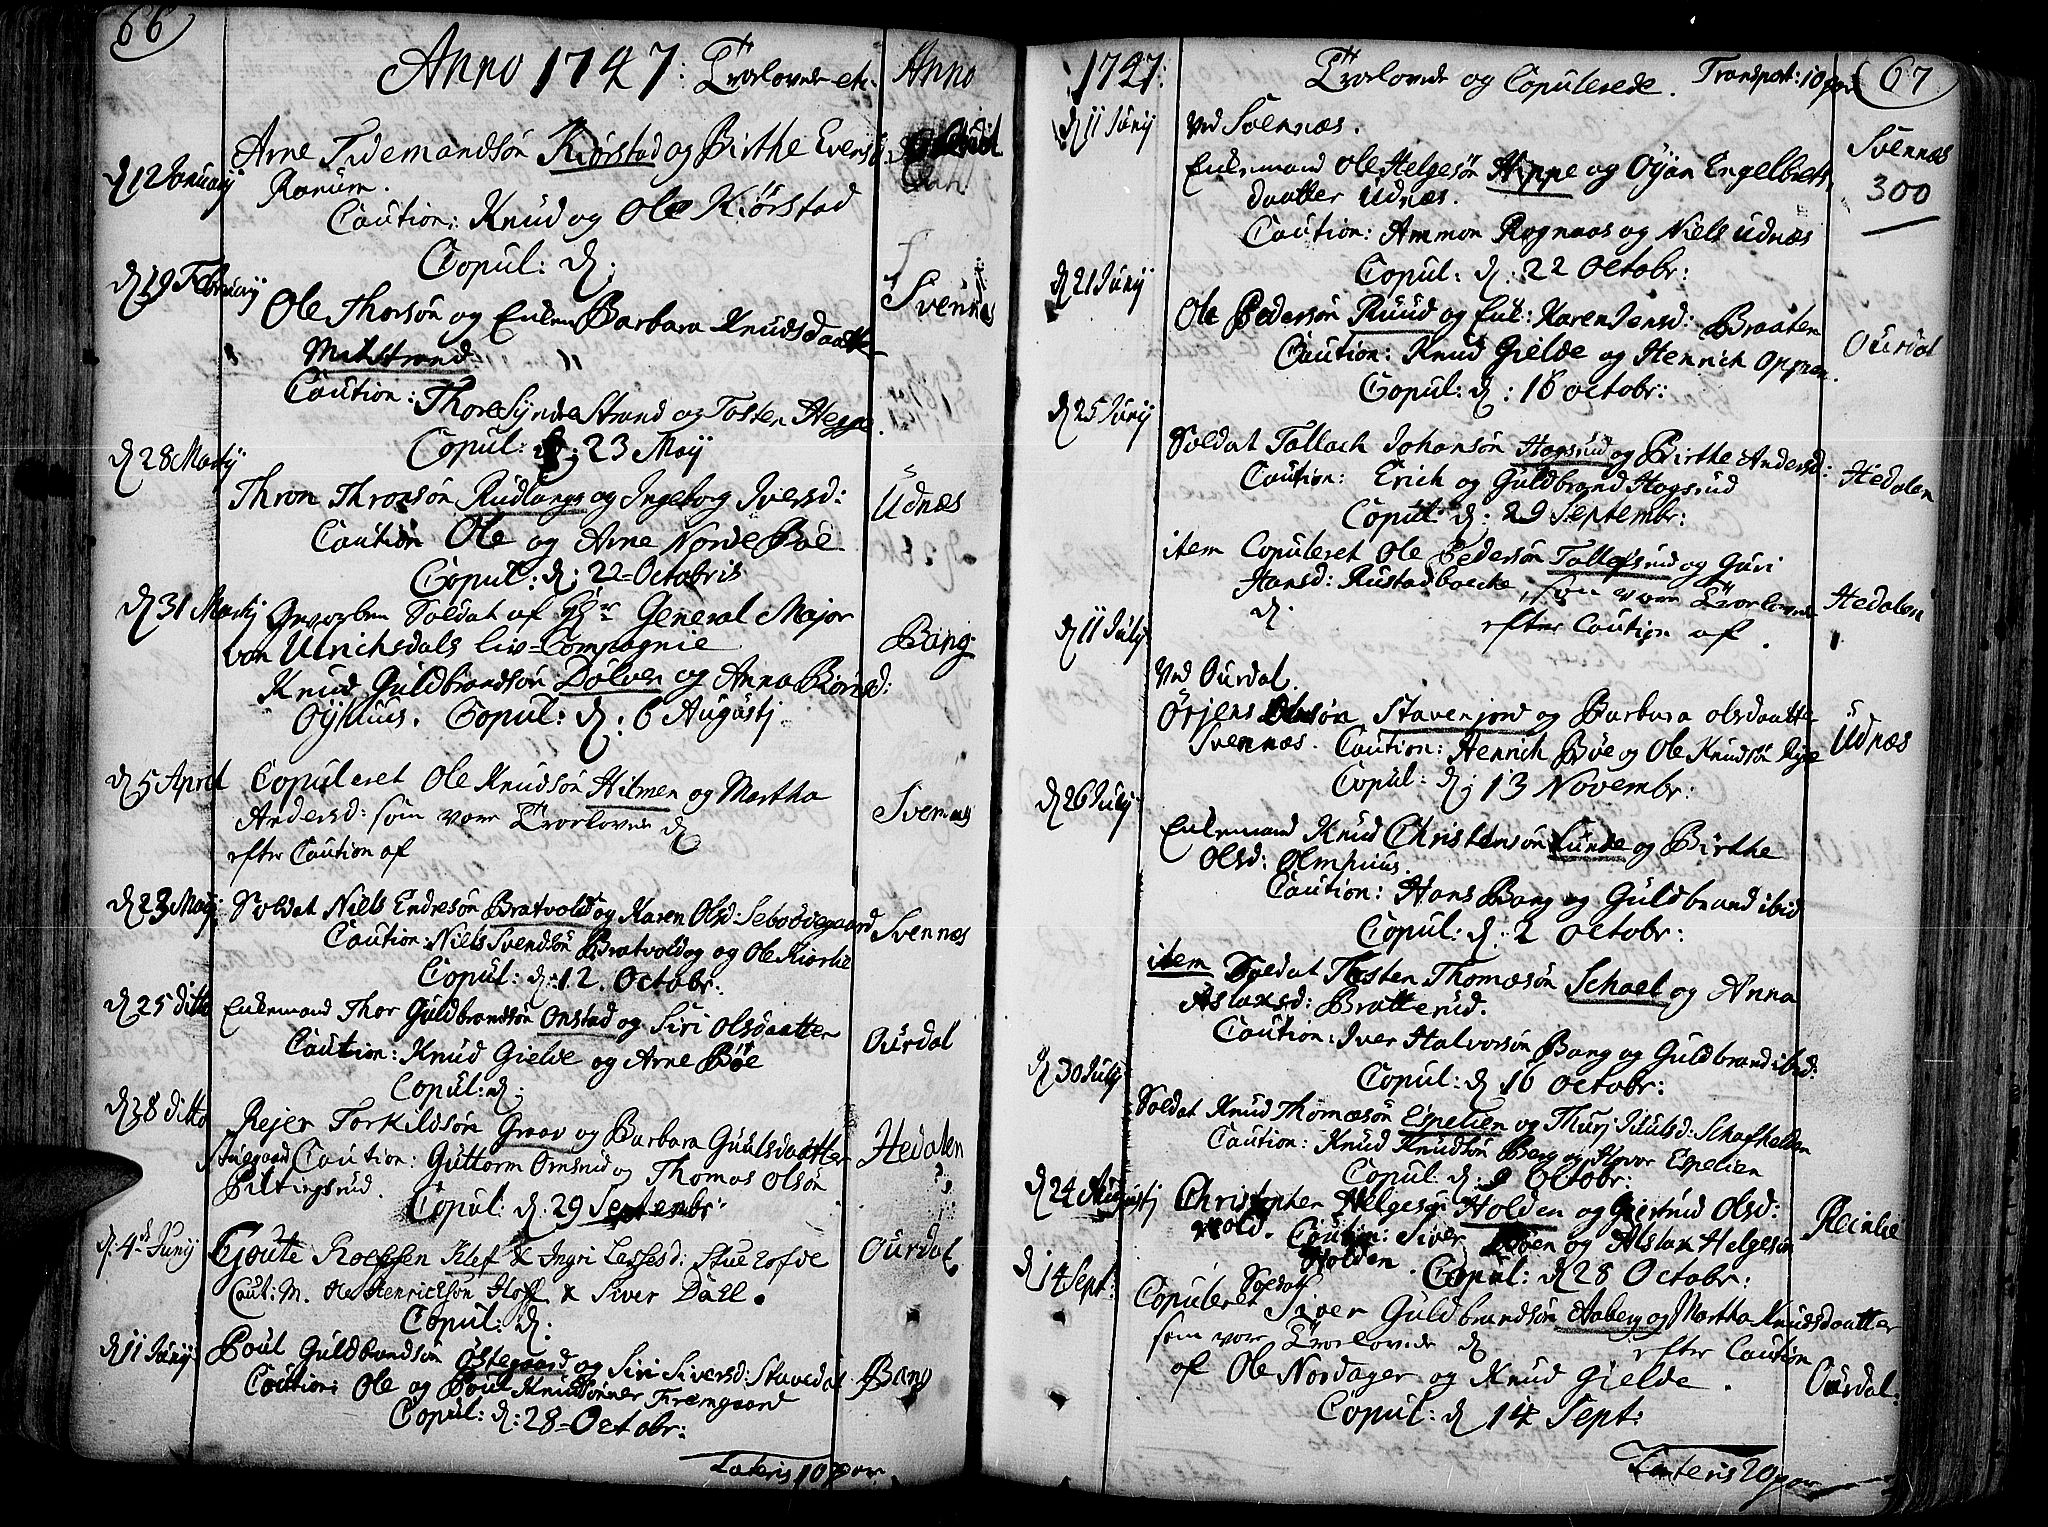 66
Anno 1747: Trorlovede etc. Anno
d 12 January Arne Tidemandsøn Kiørstad og Birthe Eversd:
Ranum.
Caution: Knud og Ole Kiørstad
Copul: d:
d 19 February Ole Thorsøn og Enken Barbara Knudsdaatter Svennæs
Midstrand
Caution: Thore Syndre Strand og Tosten Hegge.
Copul: d: 23 Maÿ
d 28 Martij Thron Thronsøn Rudlangs og Ingeborg Iversd: Udnæs
Caution Ole og Arne Nordre Bøe
Copul: d: 22 Octobris
d 31 Martij Gevorben Soldat af Hr General Major
von Ulrichsdals Liv-Compagnie Bang
Knud Guldbrandsøn Dølven og Anna Biørnsd:
Øÿhuus. Copul: d: 6 Augustj
d 5 April Copuleret Ole Knudsøn Hilmen og Martha Svennæs
Andersd: som vare Trorlovede d
efter Caution af
d 23 Maÿ Soldat Niels Endresøn Bratvold og Karen Olsd: Sebødegaard Svennæs
Caution: Niels Svendsøn Bratvold og Ole Kiørlie
Copul: d: 12 Octobr:
d 25 ditto Enkemand Thor Guldbrandsøn Onstad og Siri Olsdaatter Ourdal
Caution: Knud Gielde og Arne Bøe
Copul: d:
d 28 ditto Rejer Torkildsøn Graav og Barbara Guulsdaatter Hedalen
Caution: Guttorm Omsrud og Thomas Olsøn
Piltingsrud.
Copul: d. 29 Septembr:
d. 4de Junij Gjøute Roessen Klef & Ingri Lassesd: Stuelofde Ourdal
Caut: M. Ole Henrichsøn Hoff & Siver Dahl.
Copul: d:
d 11 Junij Poul Guldbrandsøn Østegaard og Siri Siversd: Stavedal Bang
Caution: Ole og Poul Knudsønner Fremgaard
Copul: d: 28 Octobr:
Lateris 10 par
1747: Trorlovede og Copulerede. Transport: 10 par 67
d 11 Junij Ved Svennæs. Svennæs
Enkemand Ole Helgesøn Hippe og Øÿan Engelbrets 300
daatter Udnæs.
Caution: Ammon Rognaas og Niels Udnæs
Copul: d: 22 Octobr:
d 21 Junij Ole Pedersøn Ruud og Enk: Karen Jensd: Braaten Ourdal
Caution: Knud Gielde og Henrich Oppen.
Copul: d: 16 Octobr:
d 25 Junij Soldat Tollach Johansøn Hagsrud og Birthe Andersd: Hedalen
Caution: Erich og Guldbrand Hogsrud
Copul: d: 29 Septembr:
item Copuleret Ole Pedersøn Tollefsrud og Guri
Hansd: Rustadboecke, som vare Trorlovede Hedalen
d. efter Caution af.
d 11 Julij Ved Ourdal.
Ørjens Olesøn Stavenjord og Barbara Olsdaatter Udnæs
Svennæs. Caution: Henrich Bøe og Ole Knudsøn Rye
Copul: d: 13 Novembr:
d 26 Julij Enkemand Knud Christensøn Lunde og Birthe
Olsd: Olmhuus.
Caution: Hans Bang og Guldbrand ibid
Copul: d: 2 Octobr:
item Soldat Tosten Thomæsøn Schael og Anna
Aslaxsd: Bratterud.
Caution: Iver Halvorsøn Bang og Guldbrand ibid:
Copul: d 16 Octobr:
d 30 Julij Soldat Knud Thomæsøn Espelien og Thurj Juulsd: Schafhelden
Caution: Knud Knudsøn Berg og Havor Espelien
Copul: d: 9 Octobr:
d 24 Augustj Christopher Helgesøn Holden og Giertrud Olsd: Reinlie
Wold. Caution: Siver Døen og Aslax Helgesøn
Holden. Copul: d 28 Octobr:
d 14 Sept: Soldat
Copuleret Siver Guldbrandsøn Aaberg og Martha Knudsdaatter
som vare Trorlovede d efter Caution
af Ole Nordager og Knud Gielde. Ourdal:
Copul: d 14 Sept:
Lateris 20 par